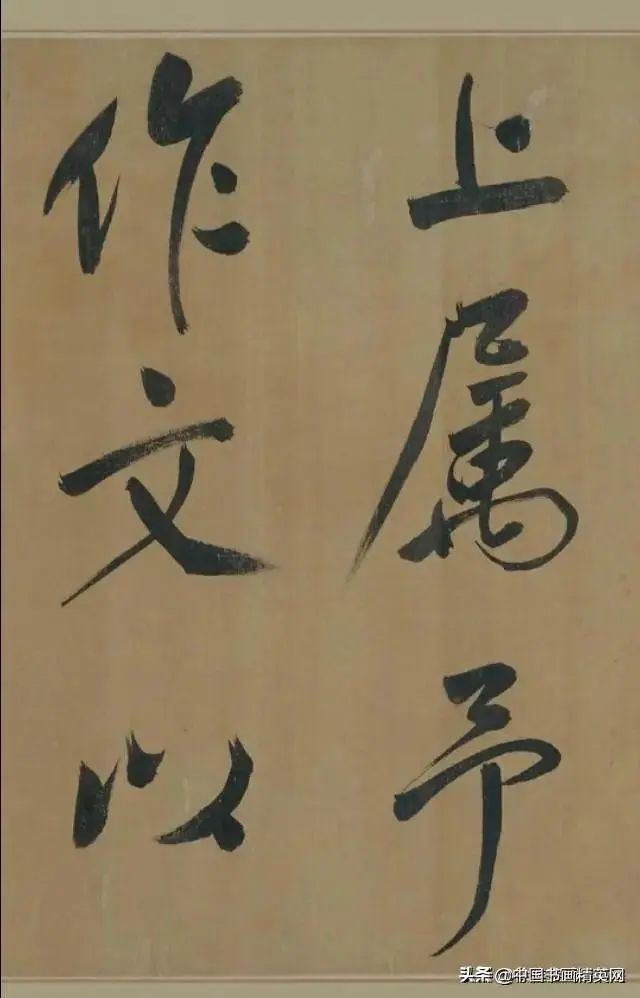 上属予
作文以
头条 @中国书画精英网